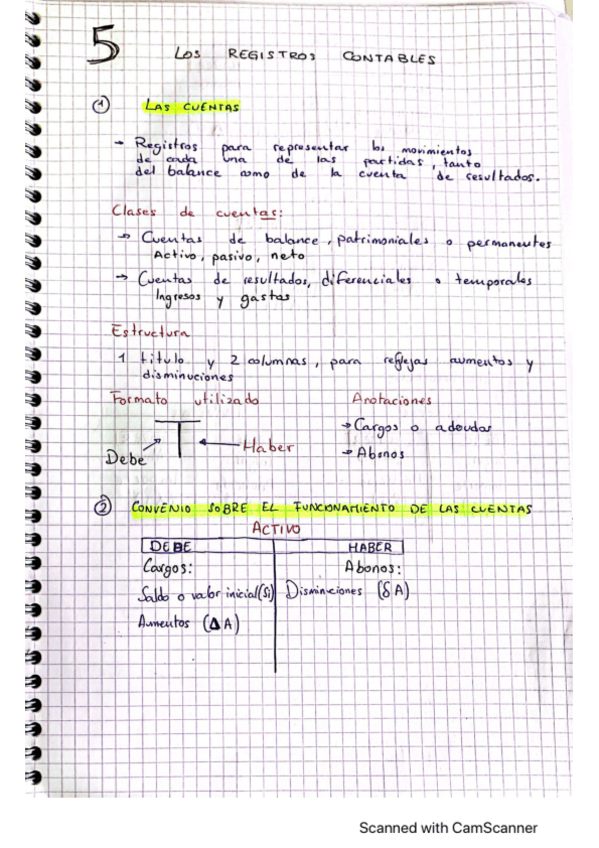 5 LOS REGISTROS CONTABLES
① LAS CUENTAS
→ Registros para representar los movimientos
de cada una de las partidas, tanto
del balance como de la cuenta de resultados.
Clases de cuentas:
→ Cuentas de balance, patrimoniales o permanentes
Activo, pasivo, neto
→ Cuentas de resultados, diferenciales o temporales
Ingresos y gastos
Estructura
1 título y 2 columnas, para reflejas aumentos y
disminuciones
Formato utilizado Anotaciones
→ Cargos o adeudos
Debe Haber → Abonos
② CONVENIO SOBRE EL FUNCIONAMIENTO DE LAS CUENTAS
ACTIVO
DEBE HABER
Cargos: Abonos:
Saldo o valor inicial (Si) Disminciones (δA)
Aumentos (ΔA)
Scanned with CamScanner